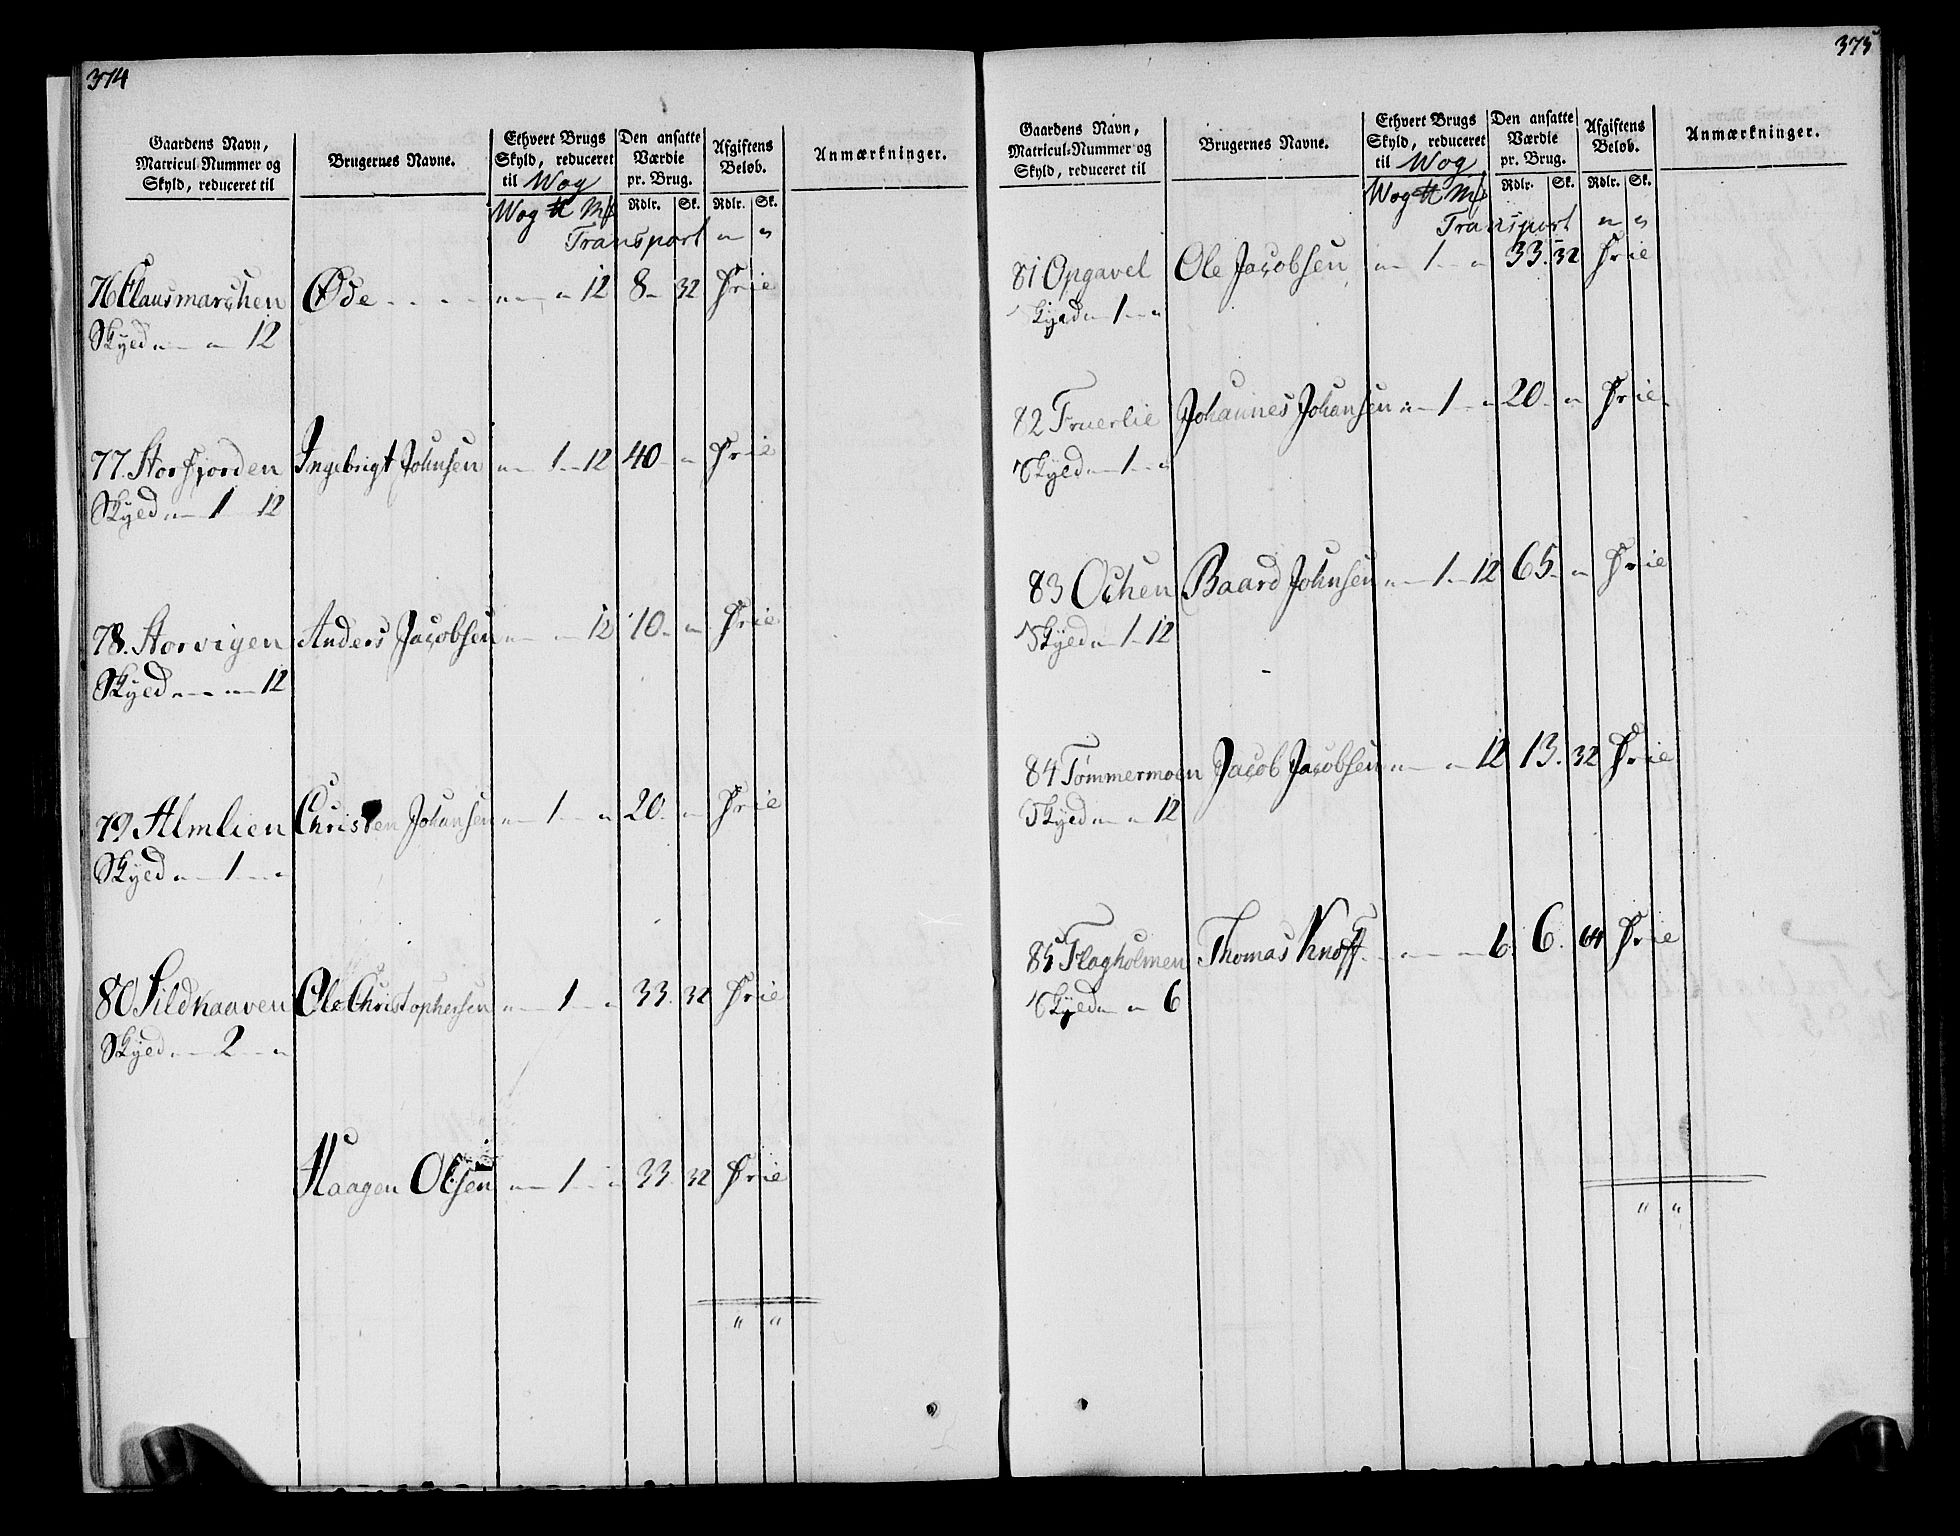 374
Gaardens Navn, Matricul-Nummer og Skyld, reduceret til
Brugernes Navne.
Ethvert Brugs Skyld, reduceret til Wog
Den ansatte Værdie pr. Brug.
Afgiftens Beløb.
Anmærkninger.
Wog ℔ Mk Rdlr. Sk. Rdlr. Sk.
Transport " "
76 Clausmarchen Øde . . . . " " 12 8 " 32 Frie
Skyed " " 12
77. Storfjorden Ingebrigt Johnsen " 1 " 12 40 " " Frie
Skyed " 1 12
78. Storvigen Anders Jacobsen " " 12 10 " " Frie
Skyed " " 12
79 Almlien Christen Johansen " 1 " " 20 " " Frie
Skyed " 1 " "
80 Sildhaaven Ole Christophersen " 1 " " 33. 32 Frie
Skyed " 2 " "
Haagen Olsen " 1 " " 33. 32 Frie
" "
375
Gaardens Navn, Matricul-Nummer og Skyld, reduceret til
Brugernes Navne.
Ethvert Brugs Skyld, reduceret til Wog
Den ansatte Værdie pr. Brug.
Afgiftens Beløb.
Anmærkninger.
Wog ℔ Mk Rdlr. Sk. Rdlr. Sk.
Transport " "
81 Opgavel Ole Jacobsen " 1 " " 33. 32 Frie
Skyed " 1 " "
82 Fruerlie Johannes Johansen " 1 " " 20 " " Frie
Skyed " 1 " "
83 Ochen Baard Johnsen " 1 " 12 65 " " Frie
Skyed " 1 " 12
84 Tømmermoen Jacob Jacobsen " " 12 13. 32 Frie
Skyed " " 12
85 Flagholmen Thomas Knoff . . " " 6. 6. 64 Frie
Skyed " " 6
" "